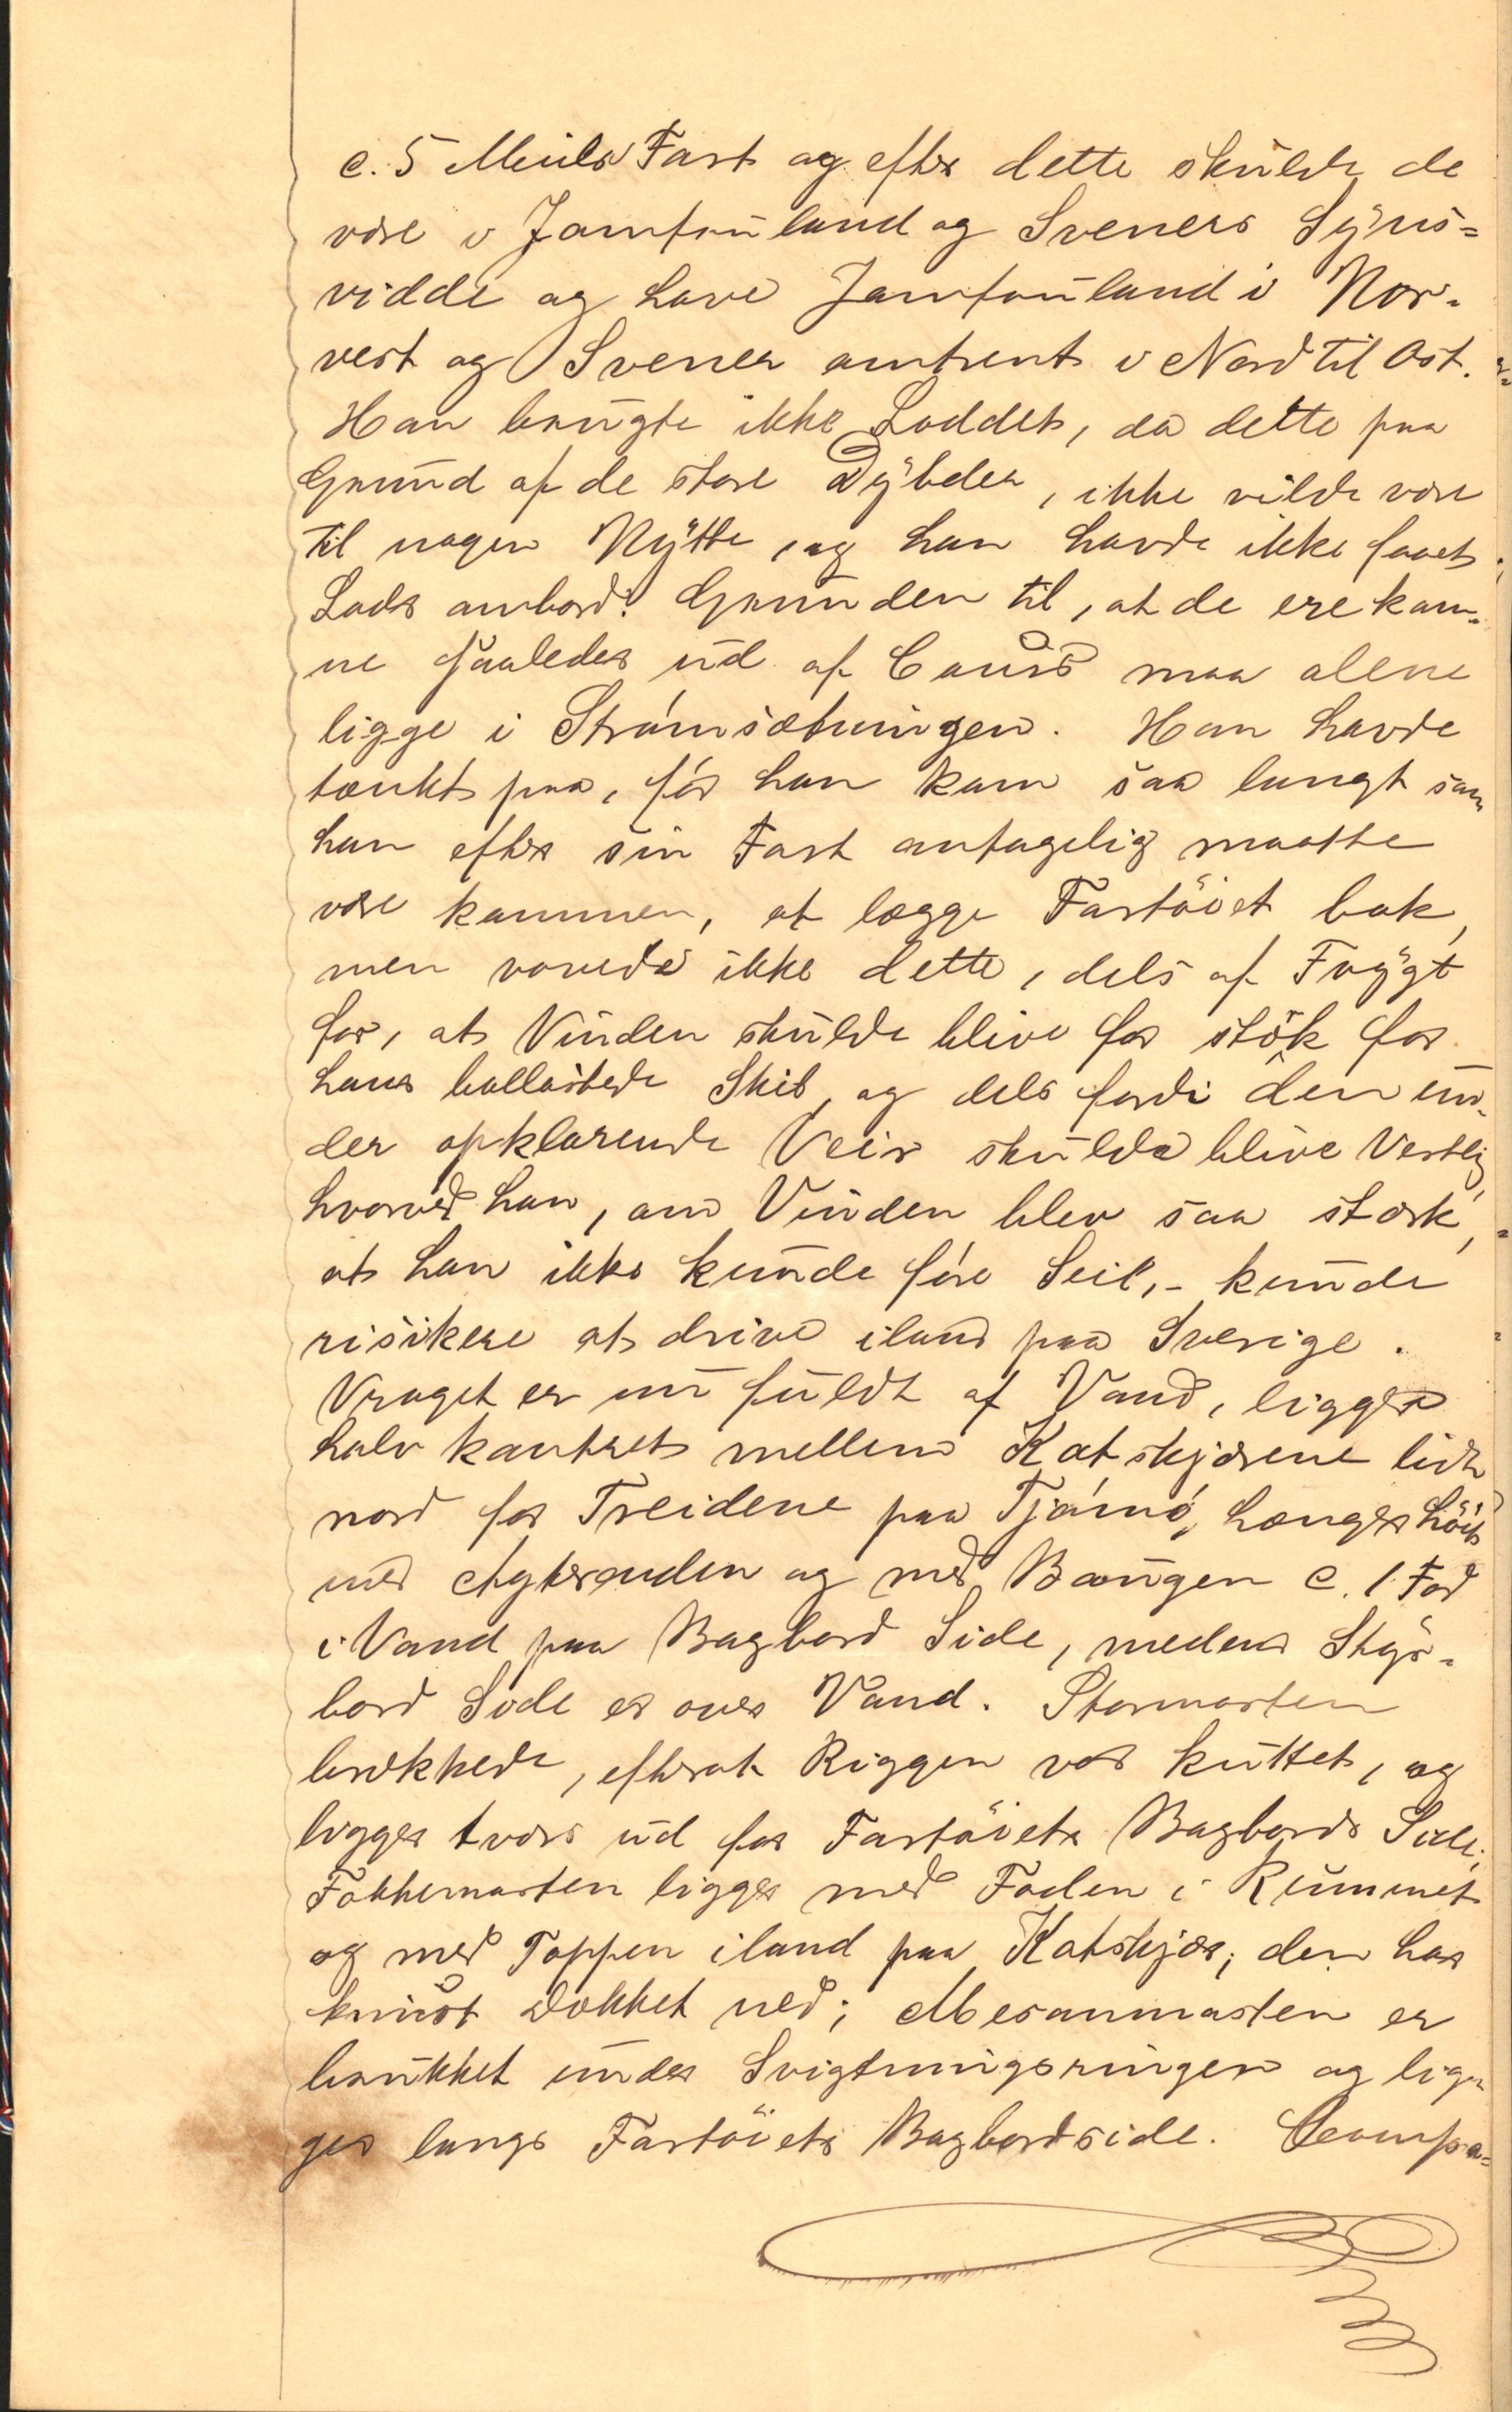 c. 5 Miils Fart og efter dette skulde de
være i Jomfruland og Sveners Syns=
vidde og have Jomfruland i Nor-
vest og Svener omtrent i Nord til Ost.
Han brugte ikke Loddet, da dette paa
Grund af de store Dybder, ikke vilde være
til nogen Nytte, og han havde ikke faaet
Lods ombord. Grunden til, at de ere kom-
ne saaledes ud af Cours maa alene
ligge i Strømsætningen. Han havde
tænkt paa, før han kom saa langt som
han efter sin Fart antagelig maatte
være kommen, at lægge Fartöiet bak,
men vovede ikke dette, dels af Frygt
for, at Vinden skulde blive for stök for
hans ballastede Skib, og dels fordi den un-
der opklarende Veir skulde blive Vestlig,
hvorved han, om Vinden blev saa stærk,
at han ikke kunde føre Seil, - kunde
risikere at drive iland paa Sverige.
Vraget er nu fuldt af Vand, ligger
halv kantret mellem Katskjærene lidt
nord for Treidene paa Tjømø, hænger höit
med Agterenden og med Bougen c. 1 Fod
i Vand paa Bagbord Side, medens Styr-
bord Side er over Vand. Stormasten
brækkede, efterat Riggen var kuttet, og
ligger tvers ud for Fartöiets Bagbords Side;
Fokkemasten ligger med Foden i Rummet
og med Toppen iland paa Katskjær; den har
knust Dækket ned; Mesanmasten er
brukket under Svigtningsringen og lig-
ger langs Fartöiets Bagbordside. Compa=